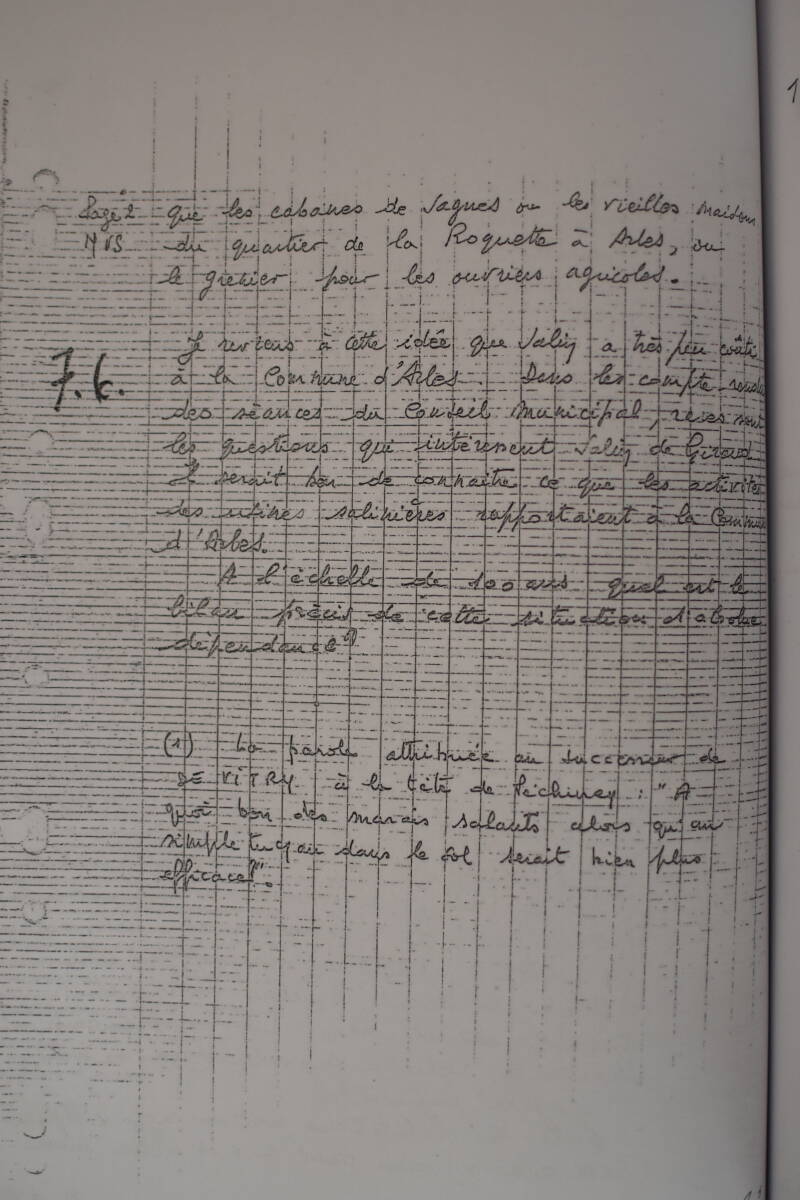 Page 2 que les cabanes de sagnes ou les vieilles maisons
MVS du quartier de la Roquette à Arles, ou
le grenier pour les ouvriers agricoles.
Je reviens à cette idée que Salin a très peu coûté
7.6. à la Commune d'Arles. Dans les compte rendu
des séances du Conseil Municipal, rares sont
les questions qui intéressent Salin de Giraud.
Il serait bon de connaitre ce que les activités
des usines salinières rapportaient à la Commune
d'Arles.
A l'échelle de 100 ans quel est le
bilan précis de cette situation d'absolue
dépendance?
(1) La parole attribuée au successeur de
DE VITRY à la tête de Péchiney : "A
quoi bon des marais salants alors qu'un
simple tuyau dans le sol serait bien plus
efficace!".
1